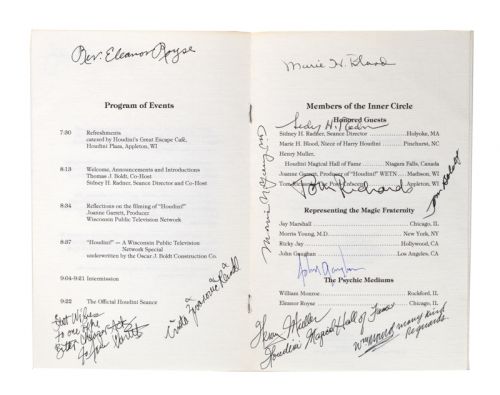 Rev. Eleanor Royse
Program of Events
7:30 Refreshments
catered by Houdini's Great Escape Café,
Houdini Plaza, Appleton, WI
8:13 Welcome, Announcements and Introductions
Thomas J. Boldt, Co-Host
Sidney H. Radner, Seance Director and Co-Host
8:34 Reflections on the filming of "Houdini!"
Joanne Garrett, Producer
Wisconsin Public Television Network
8:37 "Houdini!" — A Wisconsin Public Television
Network Special
underwritten by the Oscar J. Boldt Construction Co.
9:04-9:21 Intermission
9:22 The Official Houdini Seance
Best Wishes
to one of the
Marie H. Blood
Members of the Inner Circle
Honored Guests
Sidney H. Radner
Sidney H. Radner, Seance Director Holyoke, MA
Marie H. Blood, Niece of Harry Houdini Pinehurst, NC
Henry Muller,
Houdini Magical Hall of Fame Niagara Falls, Canada
Joanne Garrett, Producer of "Houdini!" WETN Madison, WI
Tom Appleton, WI
Tom Richards
Tom Boldt
Morris N Young MD
Representing the Magic Fraternity
Jay Marshall Chicago, IL
Morris Young, M.D. New York, NY
Ricky Jay Hollywood, CA
John Gaughan Los Angeles, CA
John Gaughan
The Psychic Mediums
William Monroe Rockford, IL
Eleanor Royse Chicago, IL
Henry Muller
Houdini Magical Hall of Fame
many kind
Regards